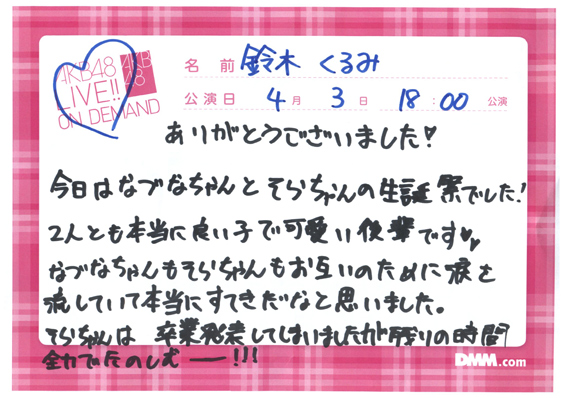 AKB48
LIVE!!
ON DEMAND
AKB
48
名前 鈴木 くるみ
公演日 4月 3日 18:00 公演
ありがとうございました♡
今日はなづなちゃんとそらちゃんの生誕祭でした!
2人とも本当に良い子で可愛い後輩です♡♡
なづなちゃんもそらちゃんもお互いのために涙を
流していて本当にすてきだなと思いました。
そらちゃんは 卒業発表してしまいましたが残りの時間
全力でたのしむー!!!
DMM.com